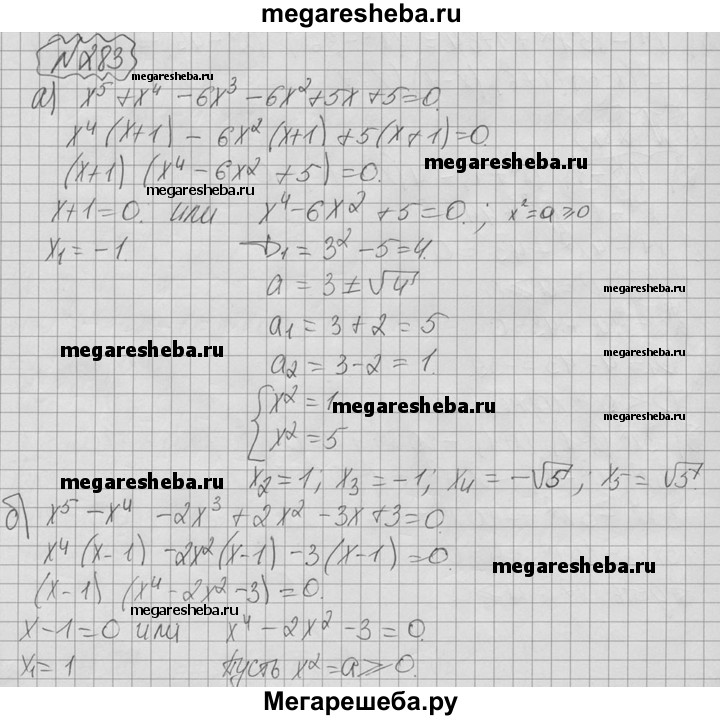 megaresheba.ru
N283
megaresheba.ru
а) x⁵ + x⁴ - 6x³ - 6x² + 5x + 5 = 0.
x⁴(x+1) - 6x²(x+1) + 5(x+1) = 0.
megaresheba.ru
(x+1) (x⁴ - 6x² + 5) = 0.
megaresheba.ru
x+1=0. или x⁴ - 6x² + 5 = 0.; x² = a ⩾ 0
x₁ = -1 D₁ = 3² - 5 = 4.
a = 3 ± √4
megaresheba.ru
a₁ = 3 + 2 = 5
megaresheba.ru
megaresheba.ru
a₂ = 3 - 2 = 1.
{ x² = 1
megaresheba.ru
megaresheba.ru
x² = 5
megaresheba.ru
x₂ = 1; x₃ = -1; x₄ = -√5; x₅ = √5.
megaresheba.ru
б) x⁵ - x⁴ - 2x³ + 2x² - 3x + 3 = 0.
x⁴(x-1) - 2x²(x-1) - 3(x-1) = 0.
megaresheba.ru
(x-1) (x⁴ - 2x² - 3) = 0.
megaresheba.ru
x-1=0 или x⁴ - 2x² - 3 = 0.
x₁ = 1 Пусть x² = a ⩾ 0.
Мегарешеба.ру